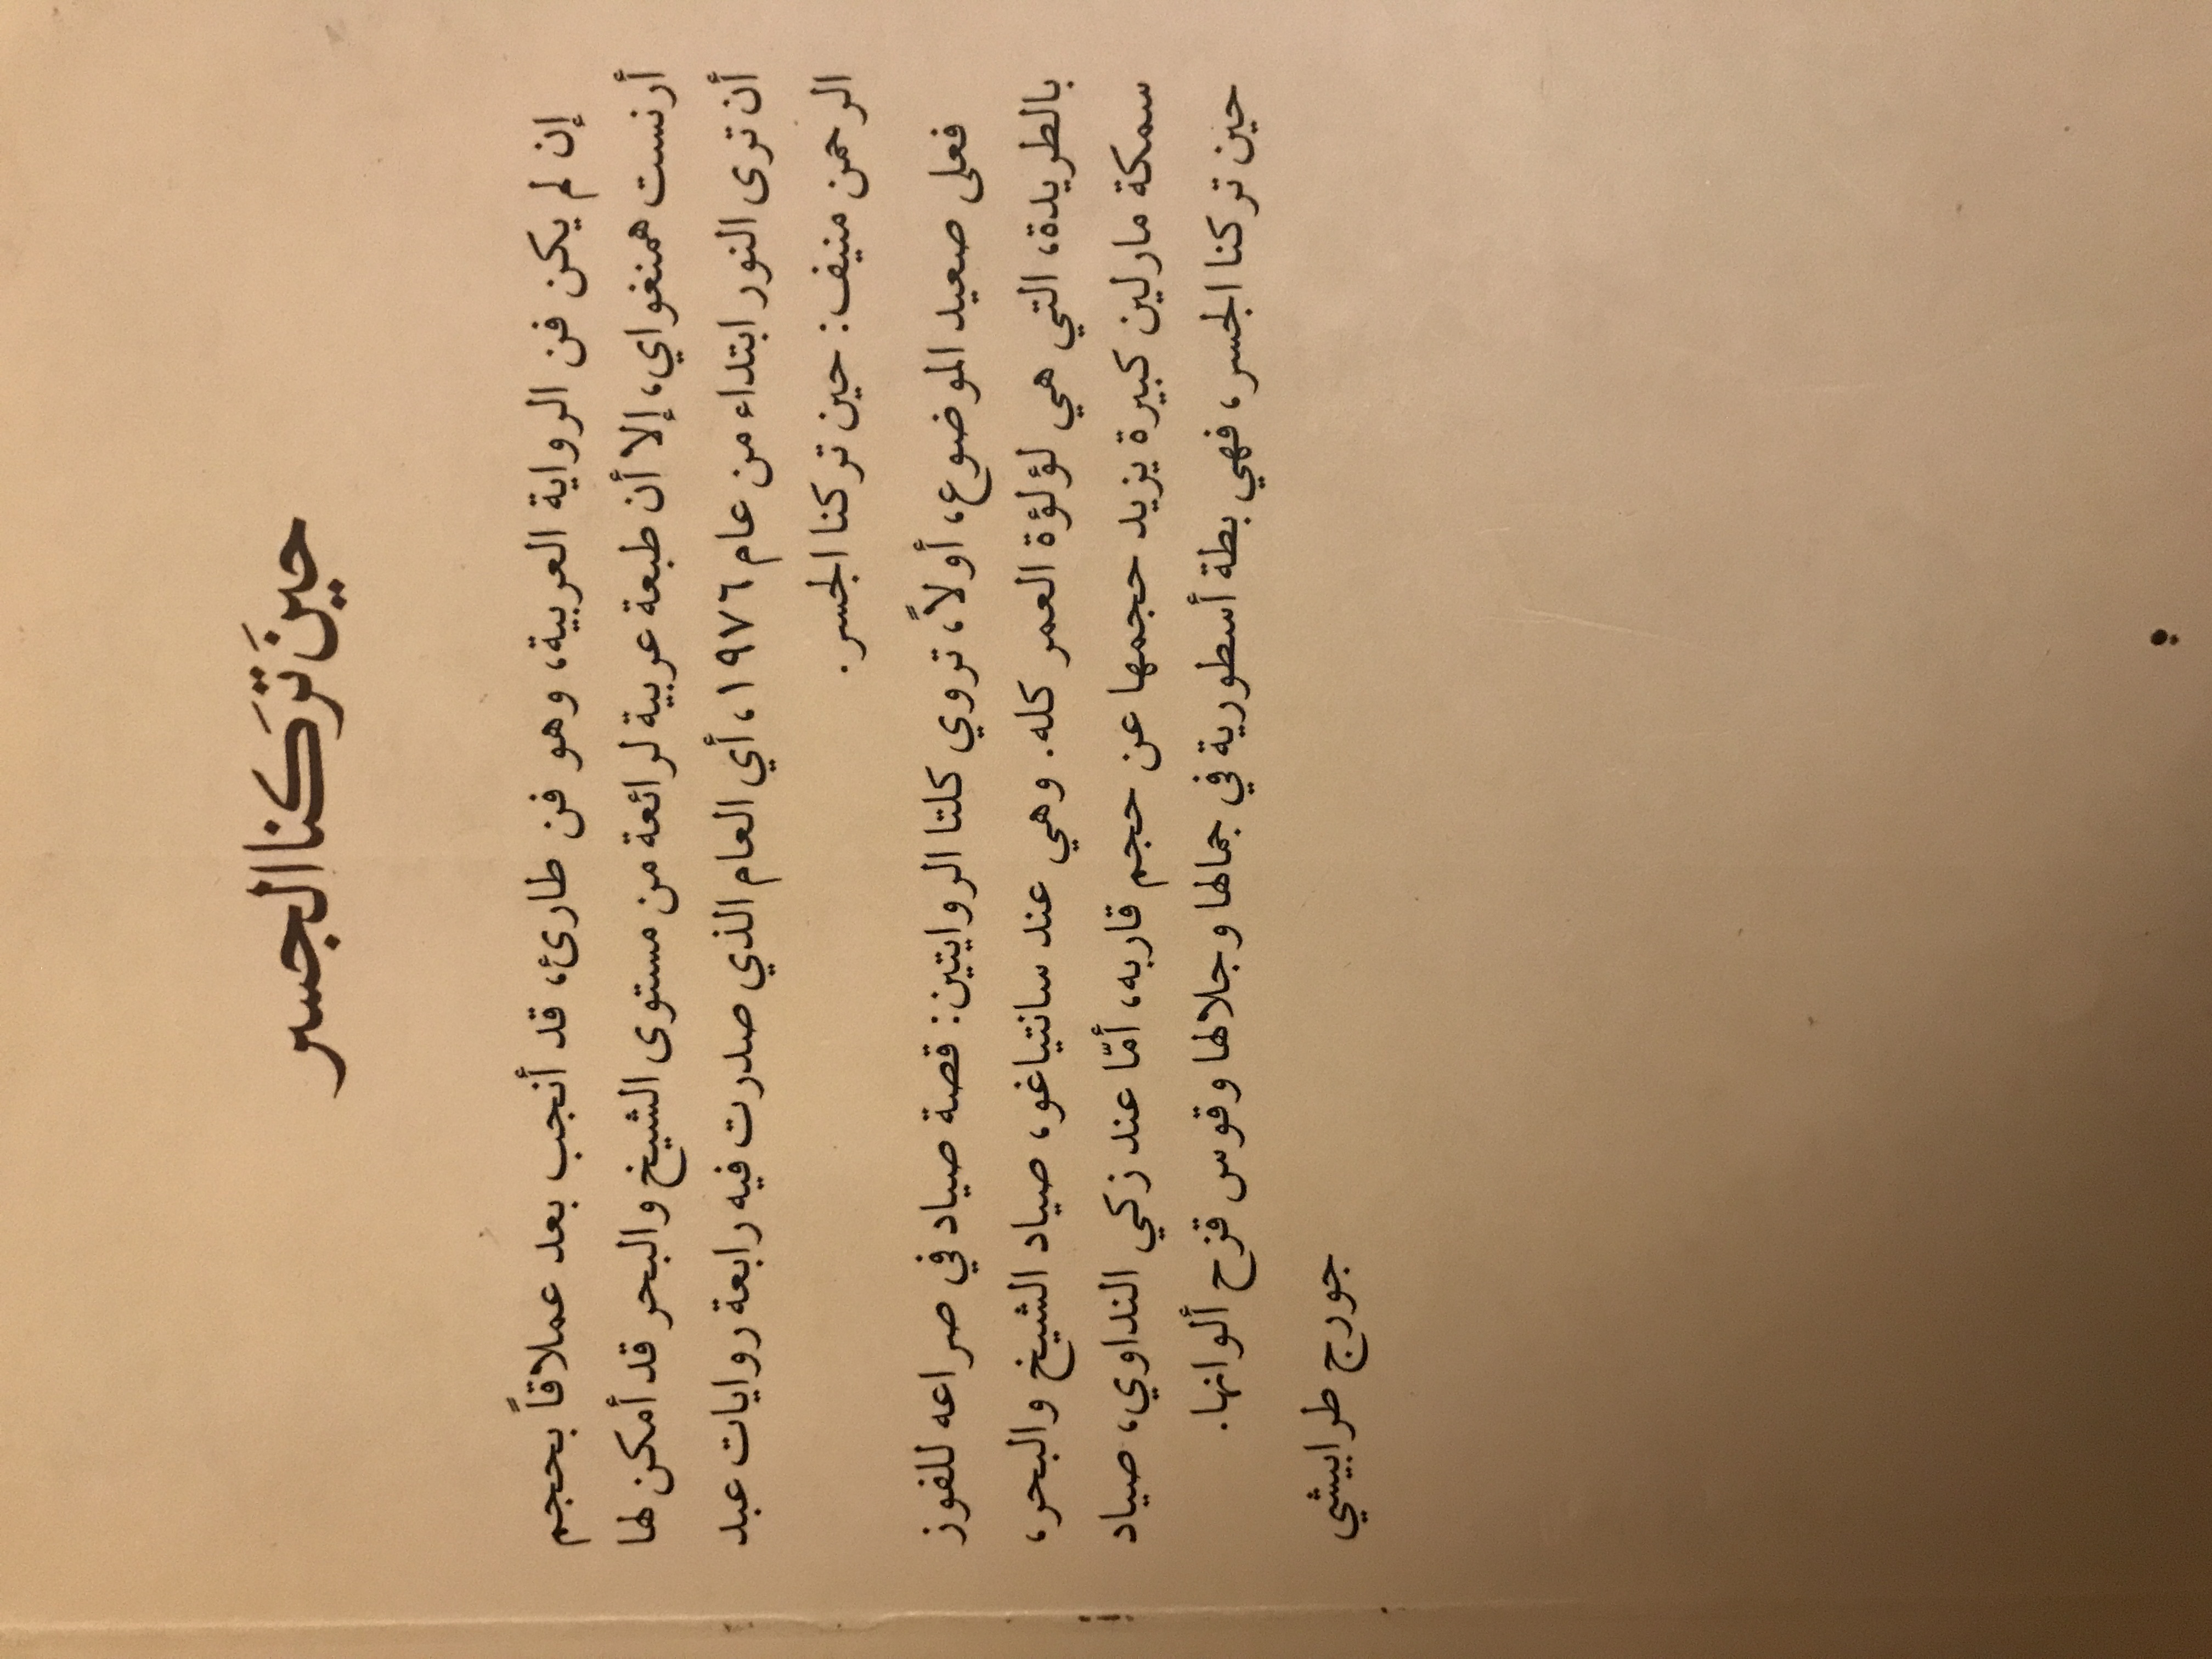 حينَ تَركنا الجسر
إن لم يكن فن الرواية العربية، وهو فن طارئ، قد أنجب بعد عملاقاً بحجم
أرنست همنغواي، إلا أن طبعة عربية لرائعة من مستوى الشيخ والبحر قد أمكن لها
أن ترى النور ابتداء من عام ١٩٧٦، أي العام الذي صدرت فيه رابعة روايات عبد
الرحمن منيف: حين تركنا الجسر.
فعلى صعيد الموضوع، أولاً، تروي كلتا الروايتين: قصة صياد في صراعه للفوز
بالطريدة، التي هي لؤلؤة العمر كله. وهي عند سانتياغو، صياد الشيخ والبحر،
سمكة مارلين كبيرة يزيد حجمها عن حجم قاربه، أمّا عند زكي النداوي، صياد
حين تركنا الجسر، فهي بطة أسطورية في جمالها وجلالها وقوس قزح ألوانها.
جورج طرابيشي